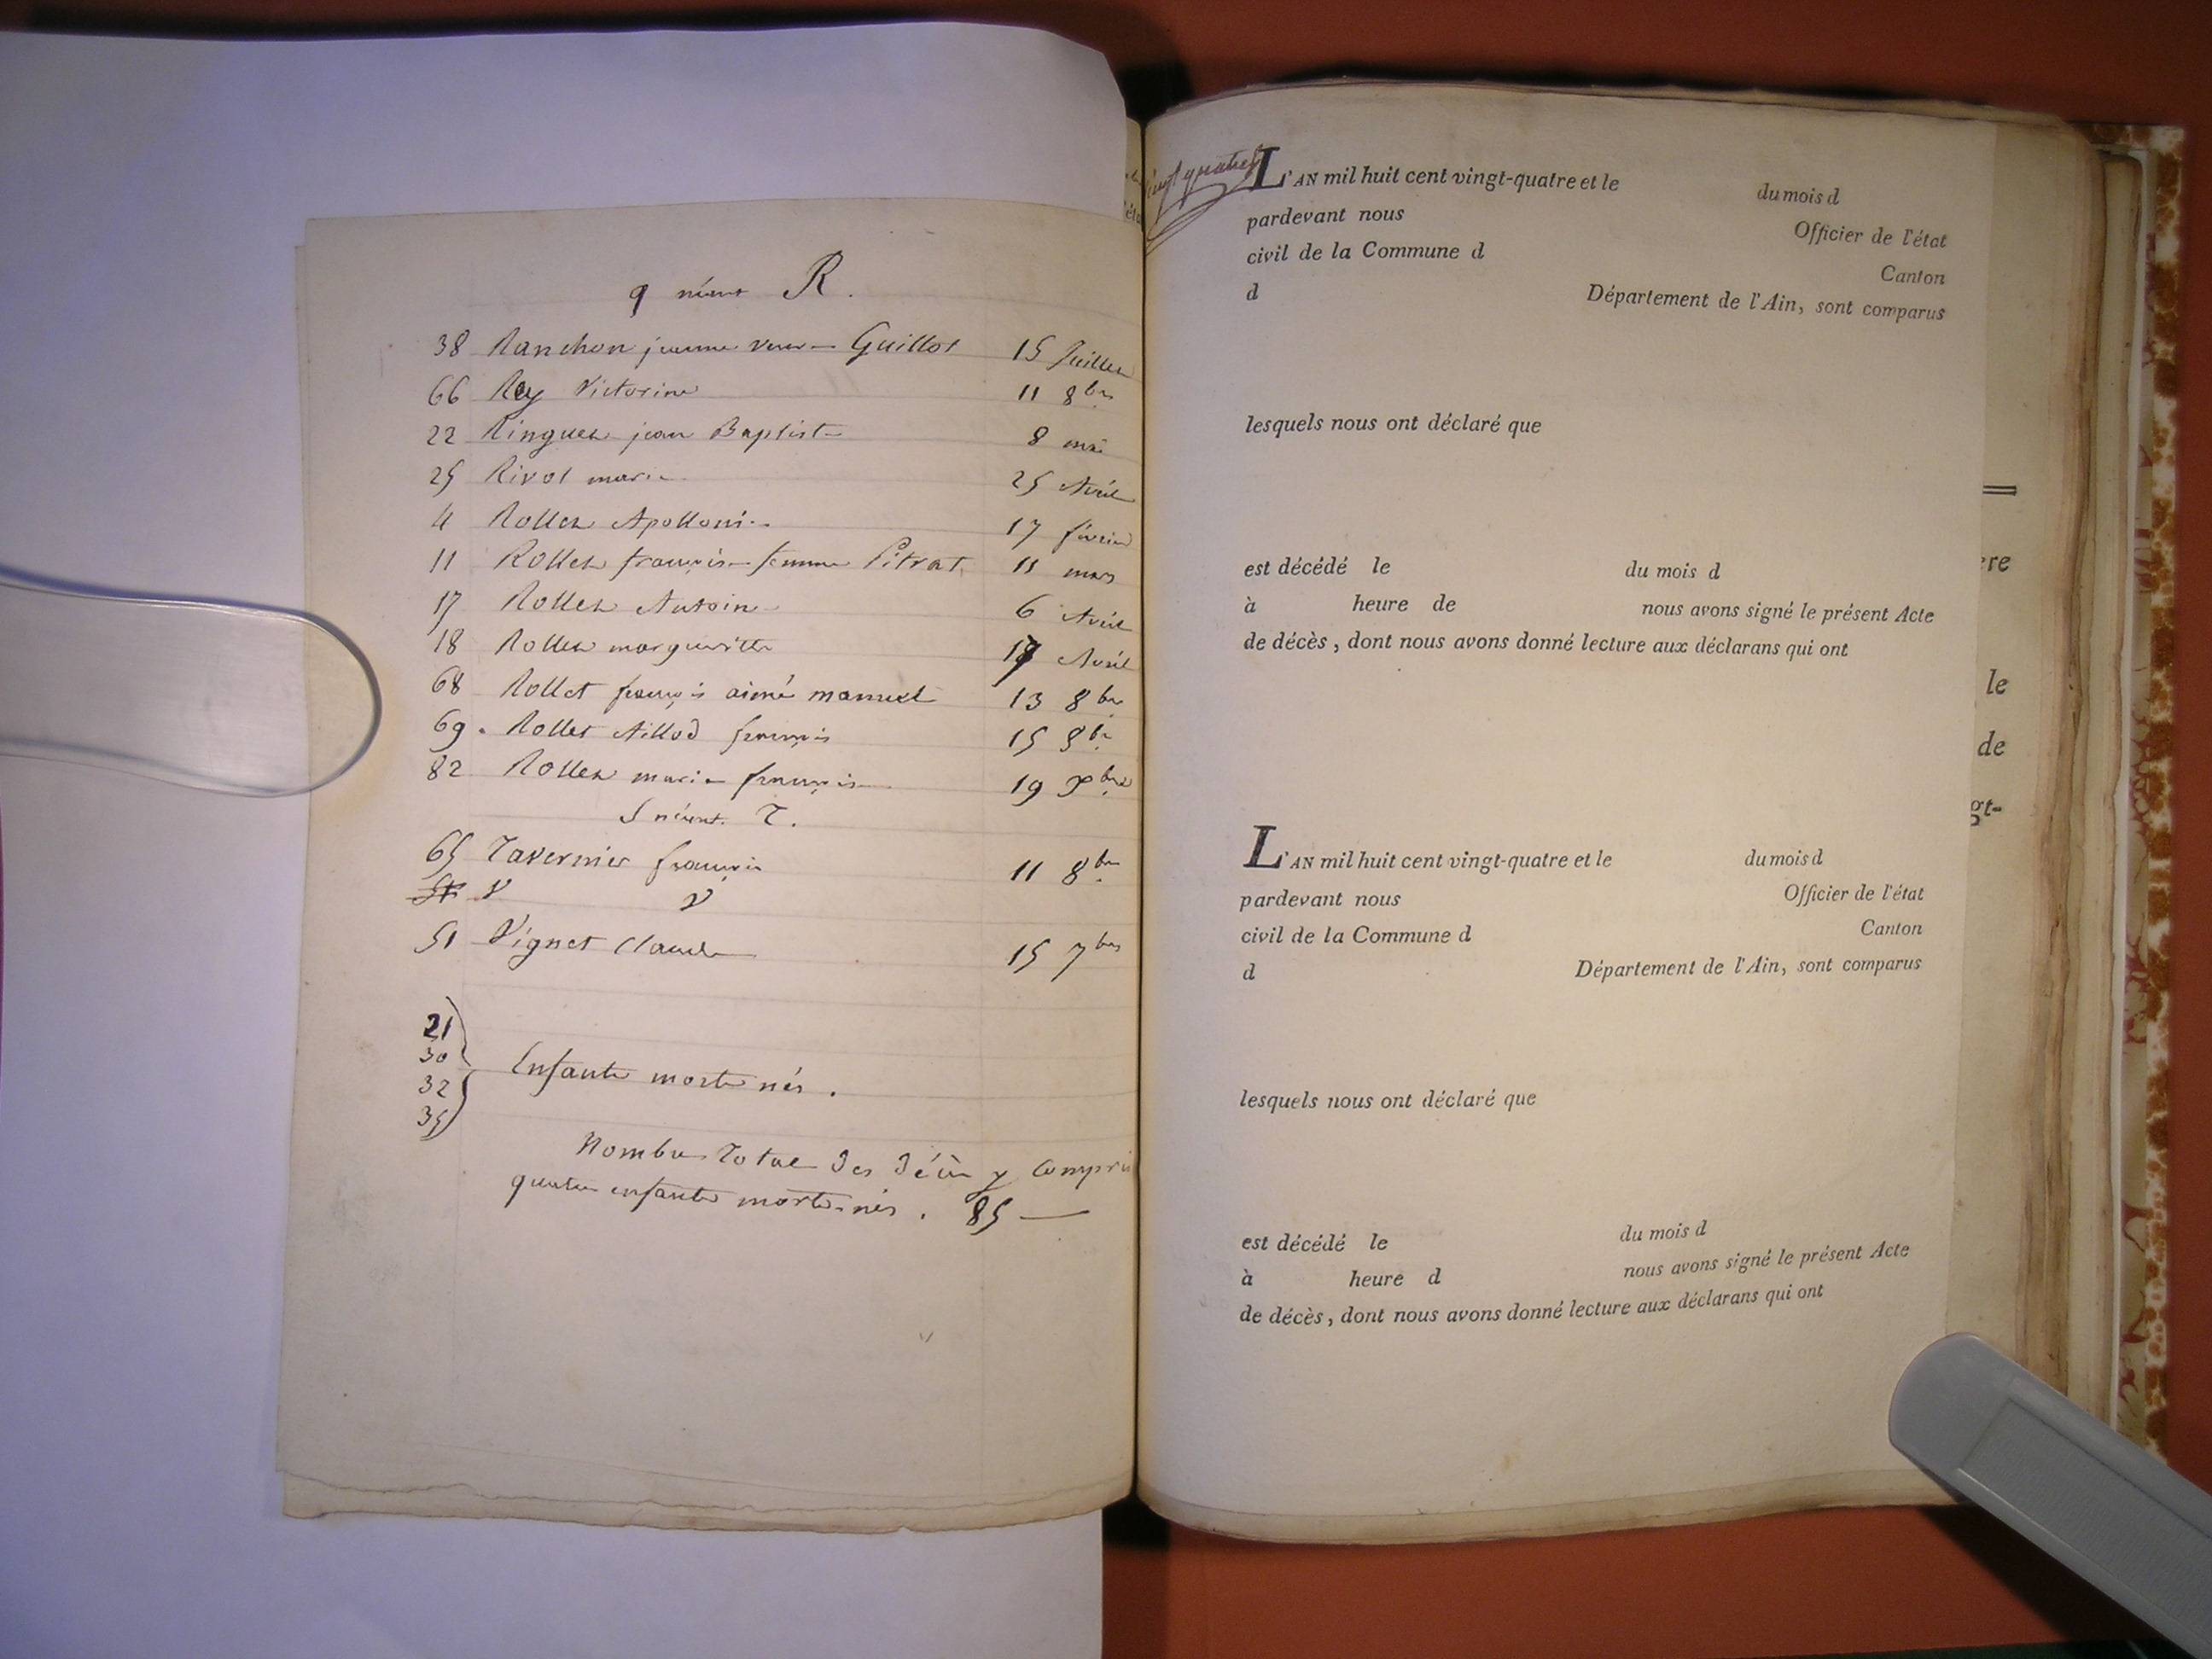 q néant R.
38 Ranchon jeanne veuve Guillot 15 Juillet
66 Rey Victorine 11 8bre
22 Ringuet jean Baptiste 8 mai
25 Rivot marie 25 Avril
4 Rollet Apollonie 17 février
11 Rollet françoise femme Pitrat 11 mars
17 Rollet Antoine 6 Avril
18 Rollet margueritte 17 Avril
68 Rollet françois aimé manuel 13 8bre
69. Rollet Aillod françois 15 8bre
82 Rollet marie françoise 19 Xbre
S néant. T.
65 Tavernier françois 11 8bre
V V
51 Vignet Claude 15 7bre
21
30
32
35
Enfants morts nés.
Nombre Total des décès y compris
quatre enfants morts-nés. 85
vingt quatre
L'AN mil huit cent vingt-quatre et le du mois d
pardevant nous Officier de l'état
civil de la Commune d Canton
d Département de l'Ain, sont comparus
lesquels nous ont déclaré que
est décédé le du mois d
à heure de nous avons signé le présent Acte
de décès, dont nous avons donné lecture aux déclarans qui ont
L'AN mil huit cent vingt-quatre et le du mois d
pardevant nous Officier de l'état
civil de la Commune d Canton
d Département de l'Ain, sont comparus
lesquels nous ont déclaré que
est décédé le du mois d
à heure d nous avons signé le présent Acte
de décès, dont nous avons donné lecture aux déclarans qui ont
re
le
de
gt-